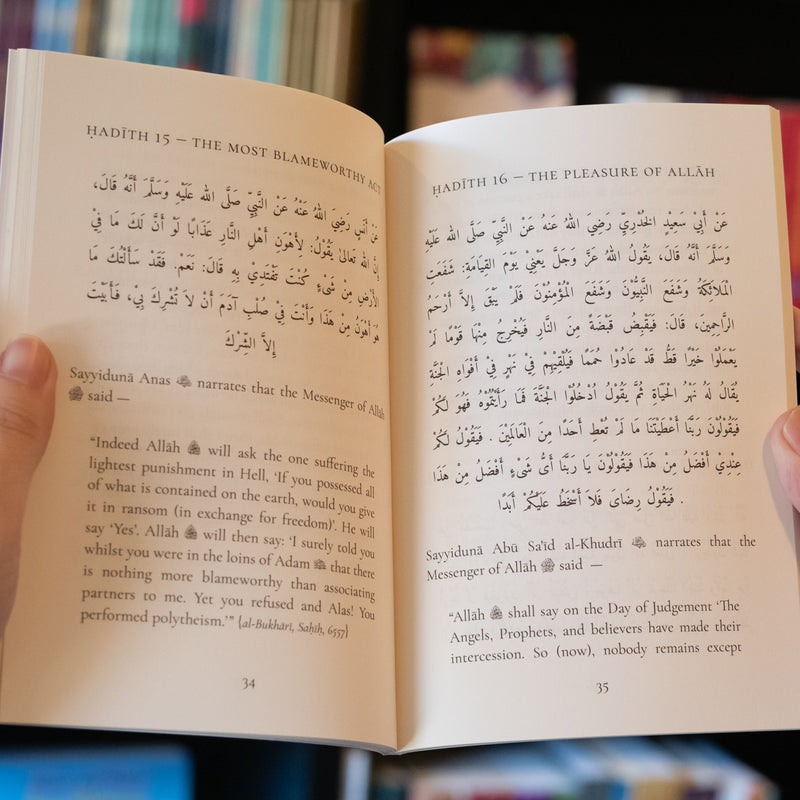 ḤADĪTH 15 – THE MOST BLAMEWORTHY ACT
عَنْ أَنَسٍ رَضِيَ اللهُ عَنْهُ عَنْ النَّبِيِّ صَلَّى الله عَلَيْهِ وَسَلَّمَ أَنَّهُ قَالَ،
إِنَّ الله تَعَالَىٰ يَقُوْلُ: لِأَهْوَنِ أَهْلِ النَّارِ عَذَابًا لَوْ أَنَّ لَكَ مَا فِيْ
الأَرْضِ مِنْ شَىْءٍ كُنْتَ تَفْتَدِيْ بِهِ قَالَ: نَعَمْ. فَقَدْ سَأَلْتُكَ مَا
هُوَ أَهْوَنُ مِنْ هَذَا وَأَنْتَ فِيْ صُلْبِ آدَمَ أَنْ لاَ تُشْرِكَ بِيْ، فَأَبَيْتَ
إِلاَّ الشِّرْكَ
Sayyidunā Anas narrates that the Messenger of Allāh
ﷺ said —
“Indeed Allāh will ask the one suffering the
lightest punishment in Hell, ‘If you possessed all
of what is contained on the earth, would you give
it in ransom (in exchange for freedom)’. He will
say ‘Yes’. Allāh will then say: ‘I surely told you
whilst you were in the loins of Adam that there
is nothing more blameworthy than associating
partners to me. Yet you refused and Alas! You
performed polytheism.’” {al-Bukhārī, Saḥīḥ, 6557}
34
ḤADĪTH 16 – THE PLEASURE OF ALLĀH
عَنْ أَبِيْ سَعِيْدٍ الخُدْرِيِّ رَضِيَ اللهُ عَنهُ عَنْ النَّبِيِّ صَلَّى الله عَلَيْهِ
وَسَلَّمَ أَنَّهُ قَالَ، يَقُوْلُ اللهُ عَزَّ وَجَلَّ يَعْنِيْ يَوْمَ القِيَامَةِ: شَفَعَتِ
المَلَائِكَةُ وَشَفَعَ النَّبِيُّوْنَ وَشَفَعَ الْمُؤْمِنُوْنَ فَلَمْ يَبْقَ إِلاَّ أَرْحَمُ
الرَّاحِمِينَ، قَالَ: فَيَقْبِضُ قَبْضَةً مِنَ النَّارِ فَيُخْرِجُ مِنْهَا قَوْمًا لَمْ
يَعْمَلُوْا خَيْرًا قَطُّ قَدْ عَادُوْا حُمَمًا فَيُلْقِيْهِمْ فِيْ نَهْرٍ فِيْ أَفْوَاهِ الجَنَّةِ
يُقَالُ لَهُ نَهْرُ الْحَيَاةِ ثُمَّ يَقُوْلُ ادْخُلُوْا الْجَنَّةَ فَمَا رَأَيْتُمُوْهُ فَهُوَ لَكُمْ
فَيَقُوْلُوْنَ رَبَّنَا أَعْطَيْتَنَا مَا لَمْ تُعْطِ أَحَدًا مِنَ الْعَالَمِيْنَ . فَيَقُوْلُ لَكُمْ
عِنْدِيْ أَفْضَلُ مِنْ هَذَا فَيَقُوْلُوْنَ يَا رَبَّنَا أَىُّ شَىْءٍ أَفْضَلُ مِنْ هَذَا
فَيَقُوْلُ رِضَاىَ فَلاَ أَسْخَطُ عَلَيْكُمْ أَبَدًا .
Sayyidunā Abū Sa‘īd al-Khudrī narrates that the
Messenger of Allāh ﷺ said —
“Allāh shall say on the Day of Judgement ‘The
Angels, Prophets, and believers have made their
intercession. So (now), nobody remains except
35